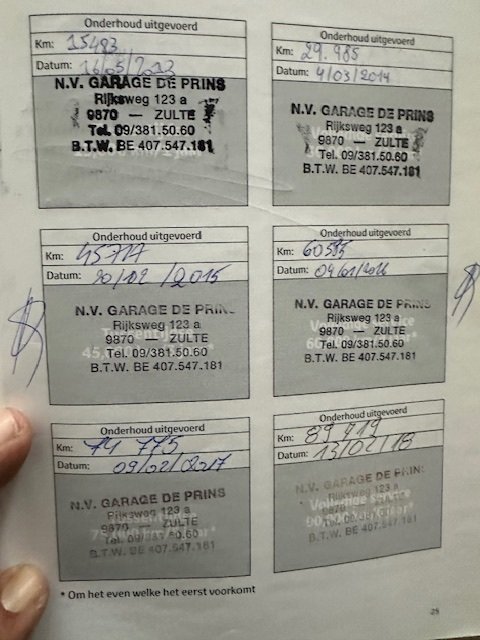 Onderhoud uitgevoerd
Km: 15483
Datum: 16/05/2013
N.V. GARAGE DE PRINS
Rijksweg 123 a
9870 — ZULTE
Tel. 09/381.50.60
B.T.W. BE 407.547.181
Onderhoud uitgevoerd
Km: 29.985
Datum: 4/03/2014
N.V. GARAGE DE PRINS
Rijksweg 123 a
9870 — ZULTE
Tel. 09/381.50.60
B.T.W. BE 407.547.181
Onderhoud uitgevoerd
Km:
Datum: /2015
N.V. GARAGE DE PRINS
Rijksweg 123 a
9870 — ZULTE
Tel. 09/381.50.60
B.T.W. BE 407.547.181
Onderhoud uitgevoerd
Km: 60585
Datum: 04/01/2016
N.V. GARAGE DE PRINS
Rijksweg 123 a
9870 — ZULTE
Tel. 09/381.50.60
B.T.W. BE 407.547.181
Onderhoud uitgevoerd
Km: 74 775
Datum: 09/02/2017
N.V. GARAGE DE PRINS
Rijksweg 123 a
9870 — ZULTE
Tel. 09/381.50.60
B.T.W. BE 407.547.181
Onderhoud uitgevoerd
Km: 89 419
Datum: 13/02/18
N.V. GARAGE DE PRINS
Rijksweg 123 a
9870 — ZULTE
Tel. 09/381.50.60
B.T.W. BE 407.547.181
* Om het even welke het eerst voorkomt
25